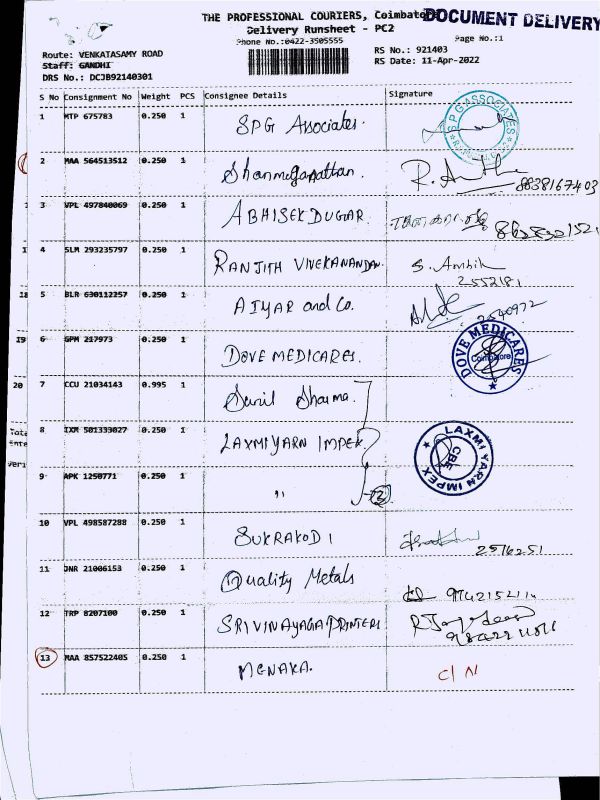 THE PROFESSIONAL COURIERS, Coimbato
DOCUMENT DELIVERY
Delivery Runsheet - PC2
Phone No.:0422-3505555
Page No.:1
Route: VENKATASAMY ROAD
Staff: GANDHI
DRS No.: DCJB92140301
RS No.: 921403
RS Date: 11-Apr-2022
S No Consignment No Weight PCS Consignee Details Signature
1 MTP 675783 0.250 1 SPG Associates.
SPG ASSOCIATES
2 MAA 564513512 0.250 1 Shanmuganathan. R.
8838167403
3 VPL 497840069 0.250 1 ABHISEK DUGAR
4 SLM 293235797 0.250 1 RANJITH VIVEKANANDAN. S. Ambik
2552181
5 BLR 630112257 0.250 1 AIYAR and Co.
2540972
6 GPM 217973 0.250 1 DOVE MEDICARES.
DOVE MEDICARES
Coimbatore
7 CCU 21034143 0.995 1 Sunil Sharma.
8 IXM 501333027 0.250 1 LAXMI YARN IMPEX
LAXMI YARN IMPEX
CBE
9 APK 1250771 0.250 1 "
10 VPL 498587288 0.250 1 SUKRAKODI
2576251
11 JNR 21006153 0.250 1 Quality Metals
12 TRP 8207100 0.250 1 SRI VINAYAGA PRINTERS
13 MAA 857522405 0.250 1 MENAKA. C/N
19
20